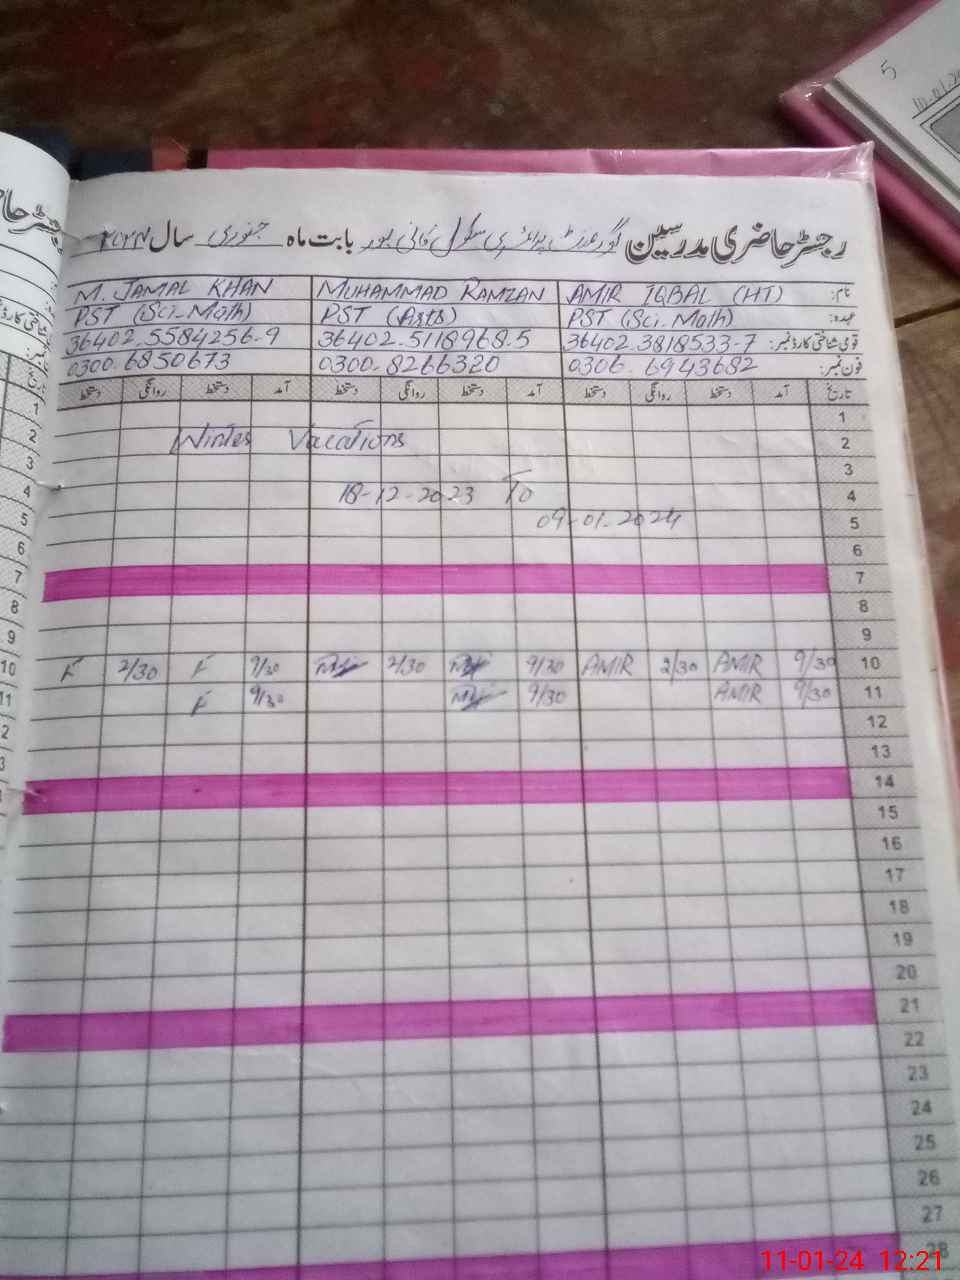 رجسٹر حاضری مدرسین گورنمنٹ پرائمری سکول بابت ماہ جنوری سال ۲۰۲۴
M. JAMAL KHAN MUHAMMAD RAMZAN AMIR IQBAL (HT) نام:
PST (Sci-Math) PST (Arts) PST (Sci-Math) عہدہ:
36402-5584256-9 36402-5118968-5 36402-3818533-7 قومی شناختی کارڈ نمبر:
0300-6850673 0300-8266320 0306-6943682 فون نمبر:
دستخط روانگی دستخط آمد دستخط روانگی دستخط آمد دستخط روانگی دستخط آمد تاریخ
1
Winter Vacations 2
3
18-12-2023 To 4
09-01-2024 5
6
7
8
9
2/30 9/30 2/30 9/30 AMIR 2/30 AMIR 9/30 10
9/30 9/30 AMIR 9/30 11
12
13
14
15
16
17
18
19
20
21
22
23
24
25
26
27
28
5
11-01-24 12:21